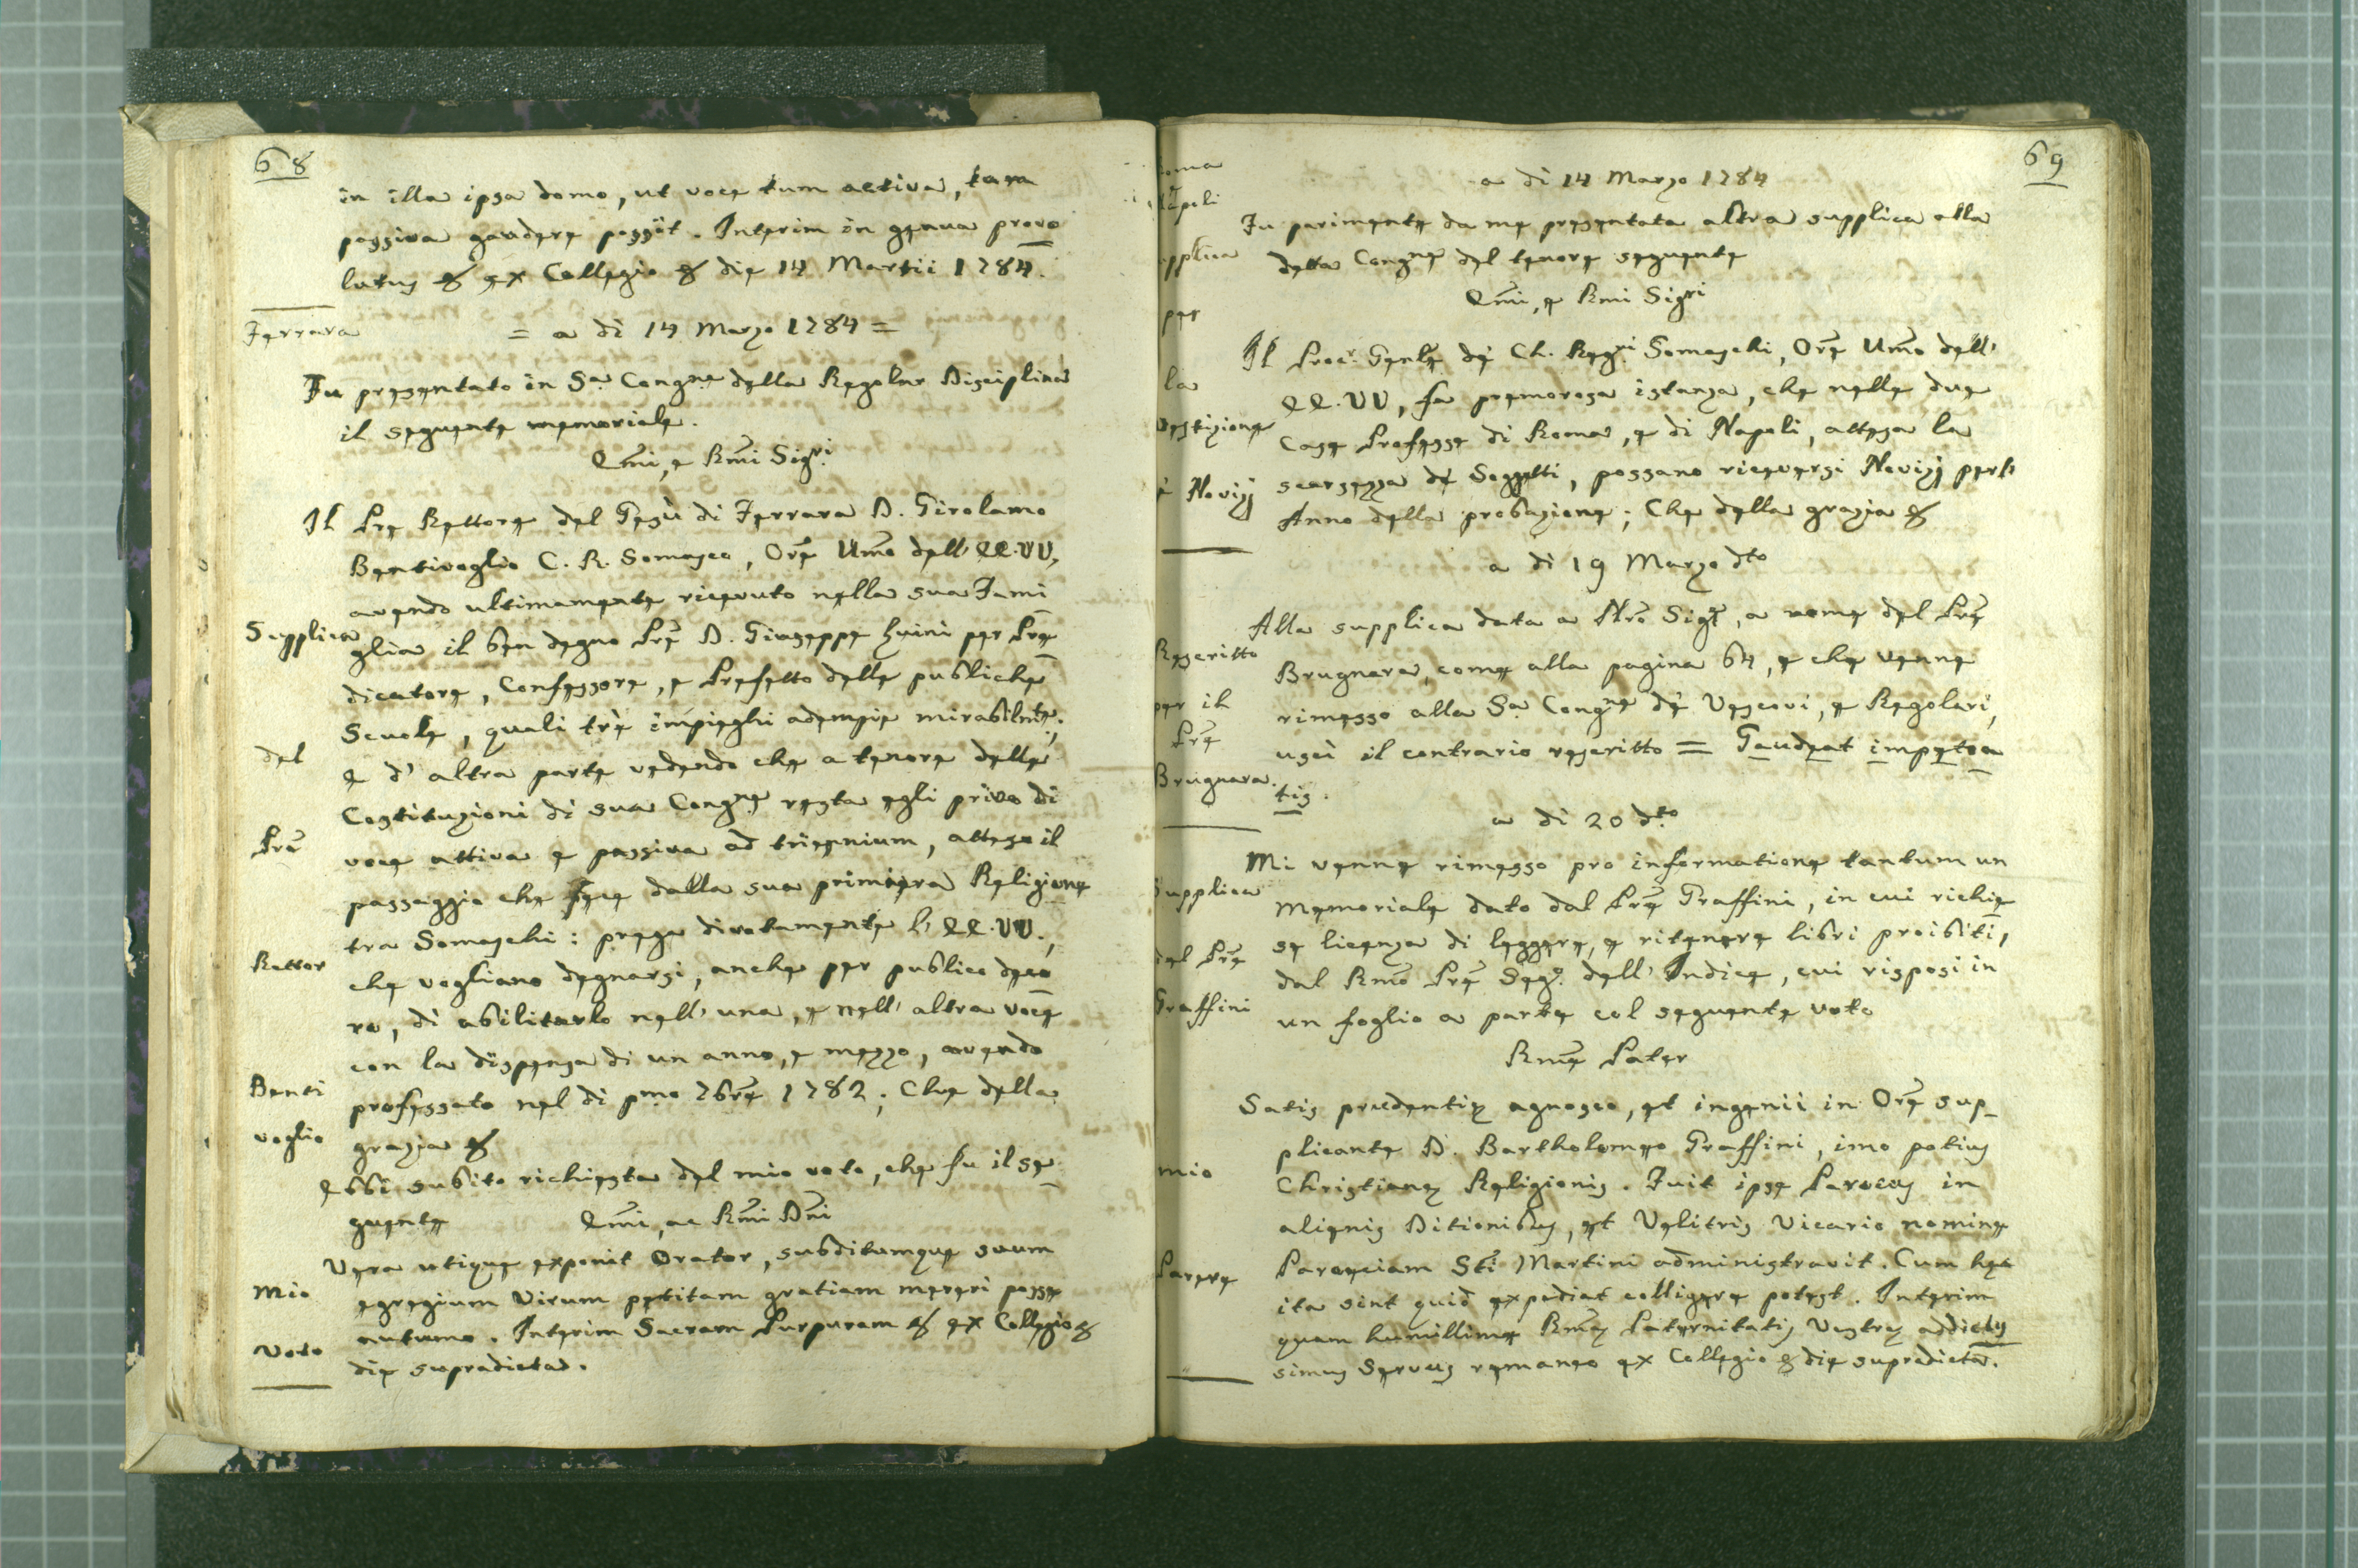 68
in illa ipsa domo, ut voce tum activa, tam
passiva gaudere possit. Interim in genua provo
lutus & ex Collegio & die 14 Martii 1784.
Ferrara
= a dì 14 Marzo 1784 =
Fu presentato in Sa. Congne della Regolar Disciplina
il seguente memoriale.
Emi, e Rmi Sigri
Il Pre Rettore del Gesù di Ferrara D. Girolamo
Bentivoglio C. R. Somasco, Ore Umo dell' EE.VV,
avendo ultimamente ricevuto nella sua Fami
Supplica
glia il ben degno Pre D. Giuseppe Luini per Pre
dicatore, Confessore, e Prefetto delle publiche
Scuole, quali trè impieghi adempie mirabilmte;
del
e d' altra parte vedendo che a tenore delle
Costituzioni di sua Congne resta egli privo di
Pre
voce attiva e passiva ad triennium, atteso il
passaggio che fece dalla sua primiera Religione
tra Somaschi: prega divotamente l' EE.VV.,
Rettor
che vogliano degnarsi, anche per publico deco
ro, di abilitarlo nell' una, e nell' altra voce
con la dispensa di un anno, e mezzo, avendo
Benti
professato nel dì pmo 7bre 1782; Che della
voglio
grazia &
Ebbi subito richiesta del mio voto, che fu il se
guente
Emi, ac Rmi Dni
Vera utique exponit Orator, subditumque suum
Mio
egregium Virum petitam gratiam mereri posse
autumo. Interim Sacram Purpuram & ex Collegio &
Voto
die supradicta.
69
a dì 14 Marzo 1784
Fu parimente da me presentata altra supplica alla
pplica
detta Congne del tenore seguente
Emi, e Rmi Sigri
per
Il Procr. Genle de' Ch. Regri Somaschi, Ore Umo dell'
la
EE.VV, fa premurosa istanza, che nelle due
vestizione
Case Professe di Roma, e di Napoli, attesa la
Novizj
scarsezza de' Soggetti, possano riceversi Novizj per l'
Anno della probazione; Che della grazia &
a dì 19 Marzo dto
Alla supplica data a Nro Sigre, a nome del Pre
Rescritto
Brugnara, come alla pagina 64, e che venne
per il
rimesso alla Sa. Congne de' Vescovi, e Regolari,
Pre
uscì il contrario rescritto = Gaudeat impetra
Brugnara.
tis.
a dì 20 dto
Mi venne rimesso pro informatione tantum un
Supplica
memoriale dato dal Pre Graffini, in cui richie
se licenza di leggere, e ritenere libri proibiti,
del Pre
dal Rmo Pre Sego. dell' Indice, cui risposi in
Graffini
un foglio a parte col seguente voto
Rme Pater
Satis prudentiæ agnosco, et ingenii in Ore sup_
plicante D. Bartholomeo Graffini, imo potius
mio
Christianæ Religionis. Fuit ipse Parocus in
alienis Ditionibus, et Velitris Vicario nomine
Parere
Paroeciam Sti Martini administravit. Cum hæc
ita sint quid expediat colligere potest. Interim
quam humillime Rmæ Paternitatis Vestræ addictis
simus Servus remaneo ex Collegio & die supradicta.